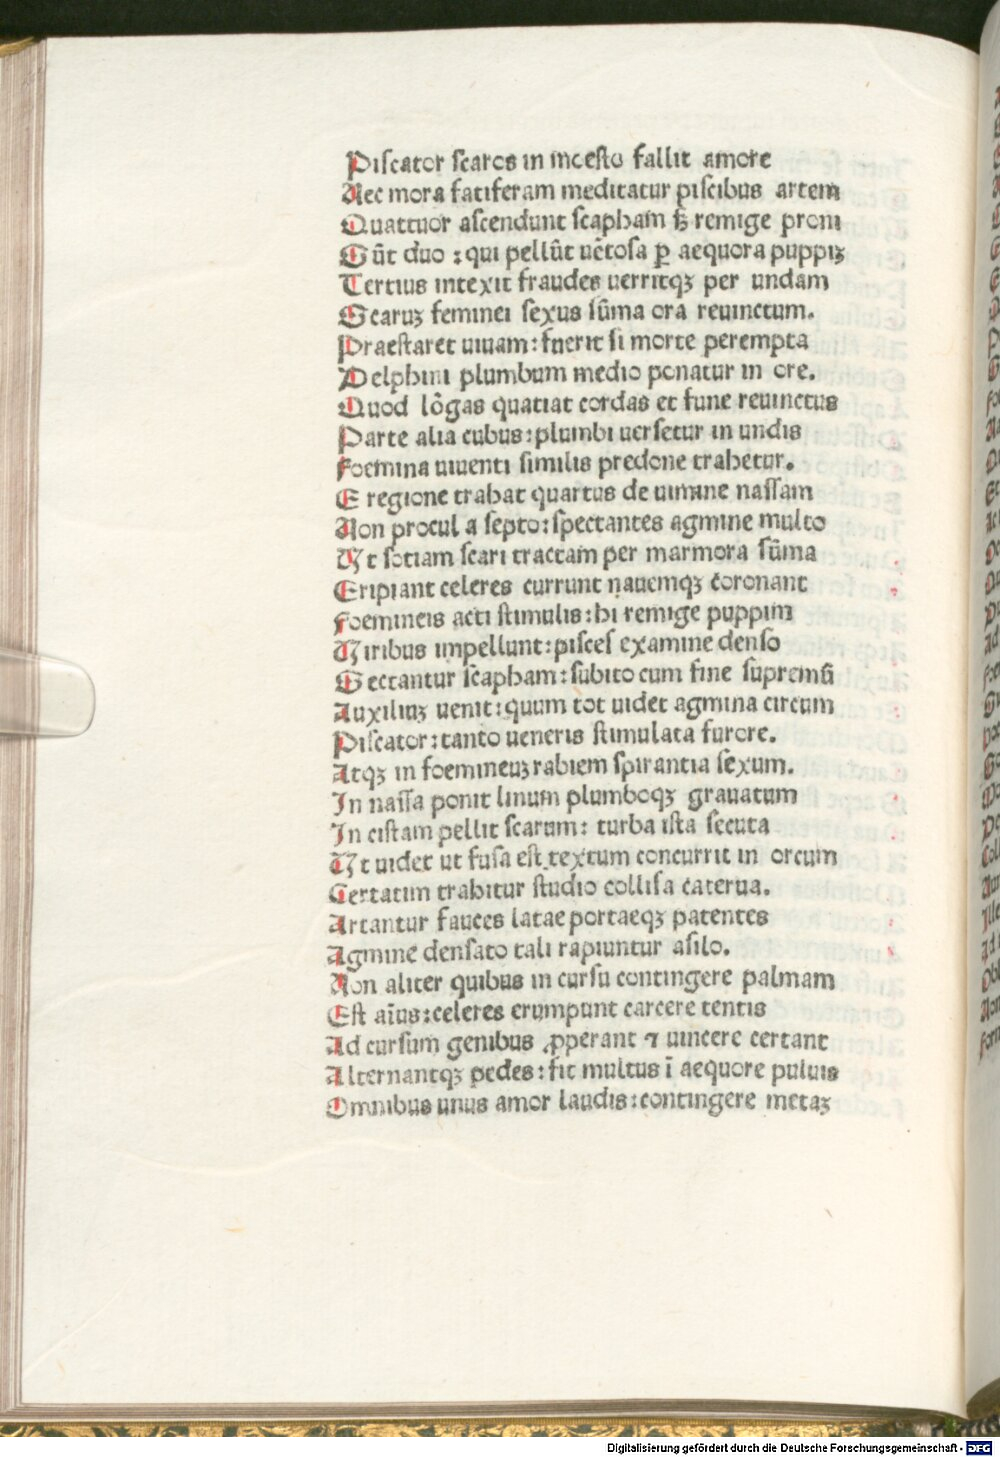 Piſcator ſcaros in inceſto fallit amore
Nec mora fatiferam meditatur piſcibus artem
Quattuor aſcendunt ſcapham ſꝫ remige proni
Sūt duo : qui pellūt uētoſa ꝑ aequora puppiꝫ
Tertius intexit fraudes uerritqꝫ per undam
Scaruꝫ feminei ſexus ſūma ora reuinctum.
Praeſtaret uiuam : fuerit ſi morte perempta
Delphini plumbum medio ponatur in ore.
Quod lōgas quatiat cordas et fune reuinctus
Parte alia cubus : plumbi uerſetur in undis
Foemina uiuenti ſimilis predone trahetur.
E regione trahat quartus de uimine naſſam
Non procul a ſepto : ſpectantes agmine multo
Vt ſotiam ſcari tractam per marmora ſūma
Eripiant celeres currunt nauemqꝫ coronant
Foemineis acti ſtimulis : hi remige puppim
Viribus impellunt : piſceſ examine denſo
Sectantur ſcapham : ſubito cum fine ſupremū
Auxiliuꝫ uenit : quum tot uidet agmina circum
Piſcator : tanto ueneris ſtimulata furore.
Atqꝫ in foemineuꝫ rabiem ſpirantia ſexum.
In naſſa ponit linum plumboqꝫ grauatum
In ciſtam pellit ſcarum : turba iſta ſecuta
Vt uidet ut fuſa eſt textum concurrit in orcum
Certatim trahitur ſtudio colliſa caterua.
Artantur fauces latae portaeqꝫ patentes
Agmine denſato tali rapiuntur aſilo.
Non aliter quibus in curſu contingere palmam
Eſt aīus : celeres erumpunt carcere tentis
Ad curſum genibus ꝓperant ⁊ uincere certant
Alternantqꝫ pedes : fit multus ī aequore puluis
Omnibus unus amor laudis : contingere metaꝫ
Digitalisierung gefördert durch die Deutsche Forschungsgemeinschaft - DFG